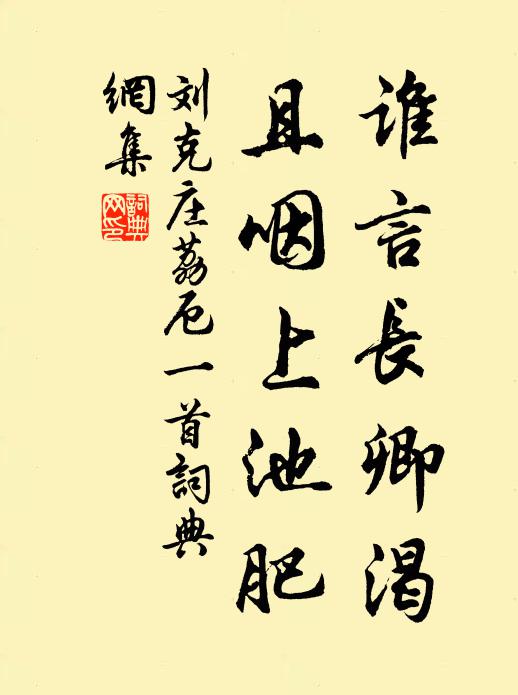 谁言長卿渴
且咽上池肥
刘克庄荔厄一首詞典
網集
詞典网印